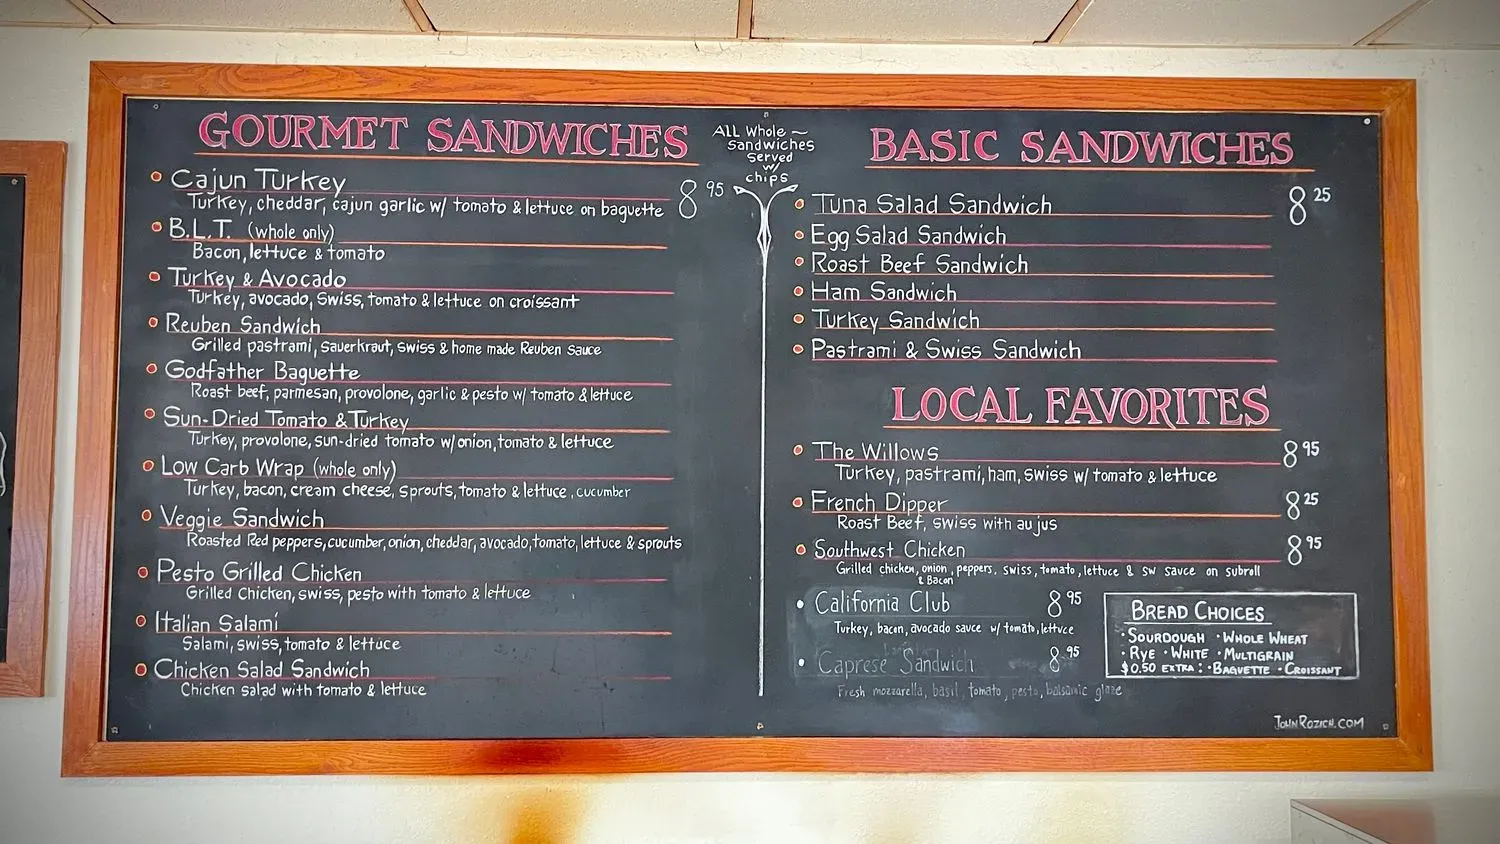 GOURMET SANDWICHES
Cajun Turkey 8 95
Turkey, cheddar, cajun garlic w/ tomato & lettuce on baguette
B.L.T. (whole only)
Bacon, lettuce & tomato
Turkey & Avocado
Turkey, avocado, Swiss, tomato & lettuce on croissant
Reuben Sandwich
Grilled pastrami, sauerkraut, swiss & home made Reuben sauce
Godfather Baguette
Roast beef, parmesan, provolone, garlic & pesto w/ tomato & lettuce
Sun-Dried Tomato & Turkey
Turkey, provolone, sun-dried tomato w/ onion, tomato & lettuce
Low Carb Wrap (whole only)
Turkey, bacon, cream cheese, sprouts, tomato & lettuce, cucumber
Veggie Sandwich
Roasted Red peppers, cucumber, onion, cheddar, avocado, tomato, lettuce & sprouts
Pesto Grilled Chicken
Grilled Chicken, swiss, pesto with tomato & lettuce
Italian Salami
Salami, swiss, tomato & lettuce
Chicken Salad Sandwich
Chicken salad with tomato & lettuce
ALL Whole ~
Sandwiches
Served
w/
chips
BASIC SANDWICHES
Tuna Salad Sandwich 8 25
Egg Salad Sandwich
Roast Beef Sandwich
Ham Sandwich
Turkey Sandwich
Pastrami & Swiss Sandwich
LOCAL FAVORITES
The Willows 8 95
Turkey, pastrami, ham, swiss w/ tomato & lettuce
French Dipper 8 25
Roast Beef, swiss with au jus
Southwest Chicken 8 95
Grilled chicken, onion, peppers, swiss, tomato, lettuce & sw sauce on subroll
& Bacon
California Club 8 95
Turkey, bacon, avocado sauce w/ tomato, lettuce
Caprese Sandwich 8 95
Fresh mozzarella, basil, tomato, pesto, balsamic glaze
BREAD CHOICES
· SOURDOUGH · WHOLE WHEAT
· RYE · WHITE · MULTIGRAIN
$0.50 EXTRA: · BAGUETTE · CROISSANT
JOHNROZICH.COM